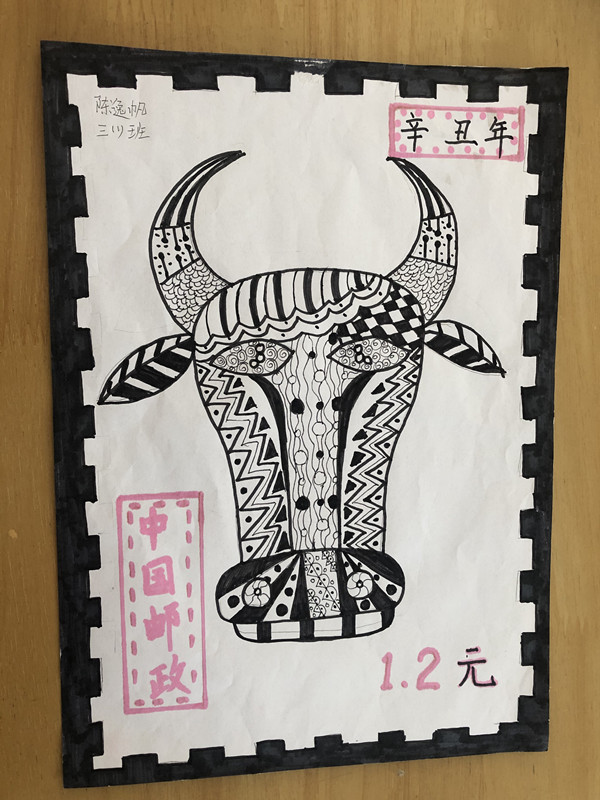 陈逸帆
三(1)班
辛丑年
中国邮政
1.2元